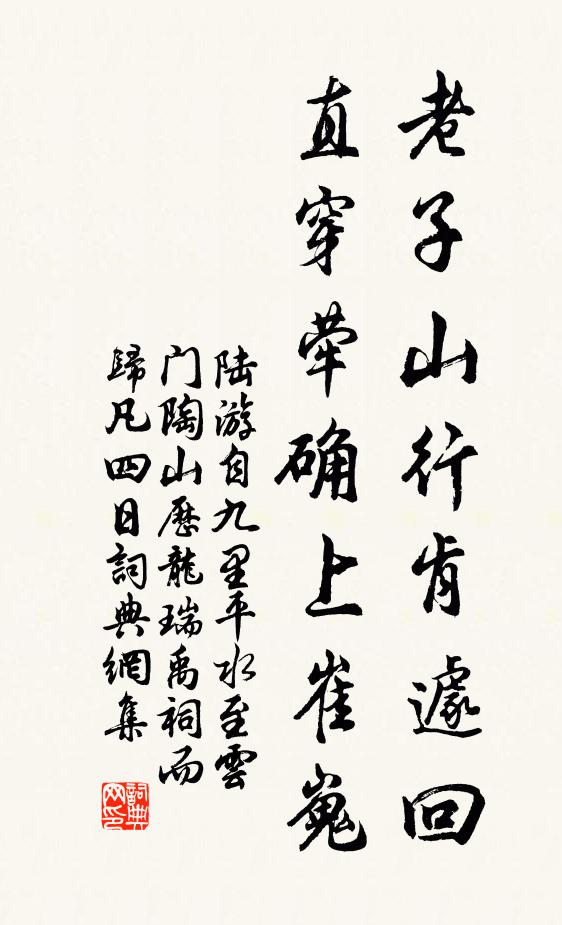 老子山行肯遽回
直穿荦确上崔嵬
陆游自九里平水至雲
门陶山歷龍瑞禹祠而
歸凡四日詞典網集
詞典
网印